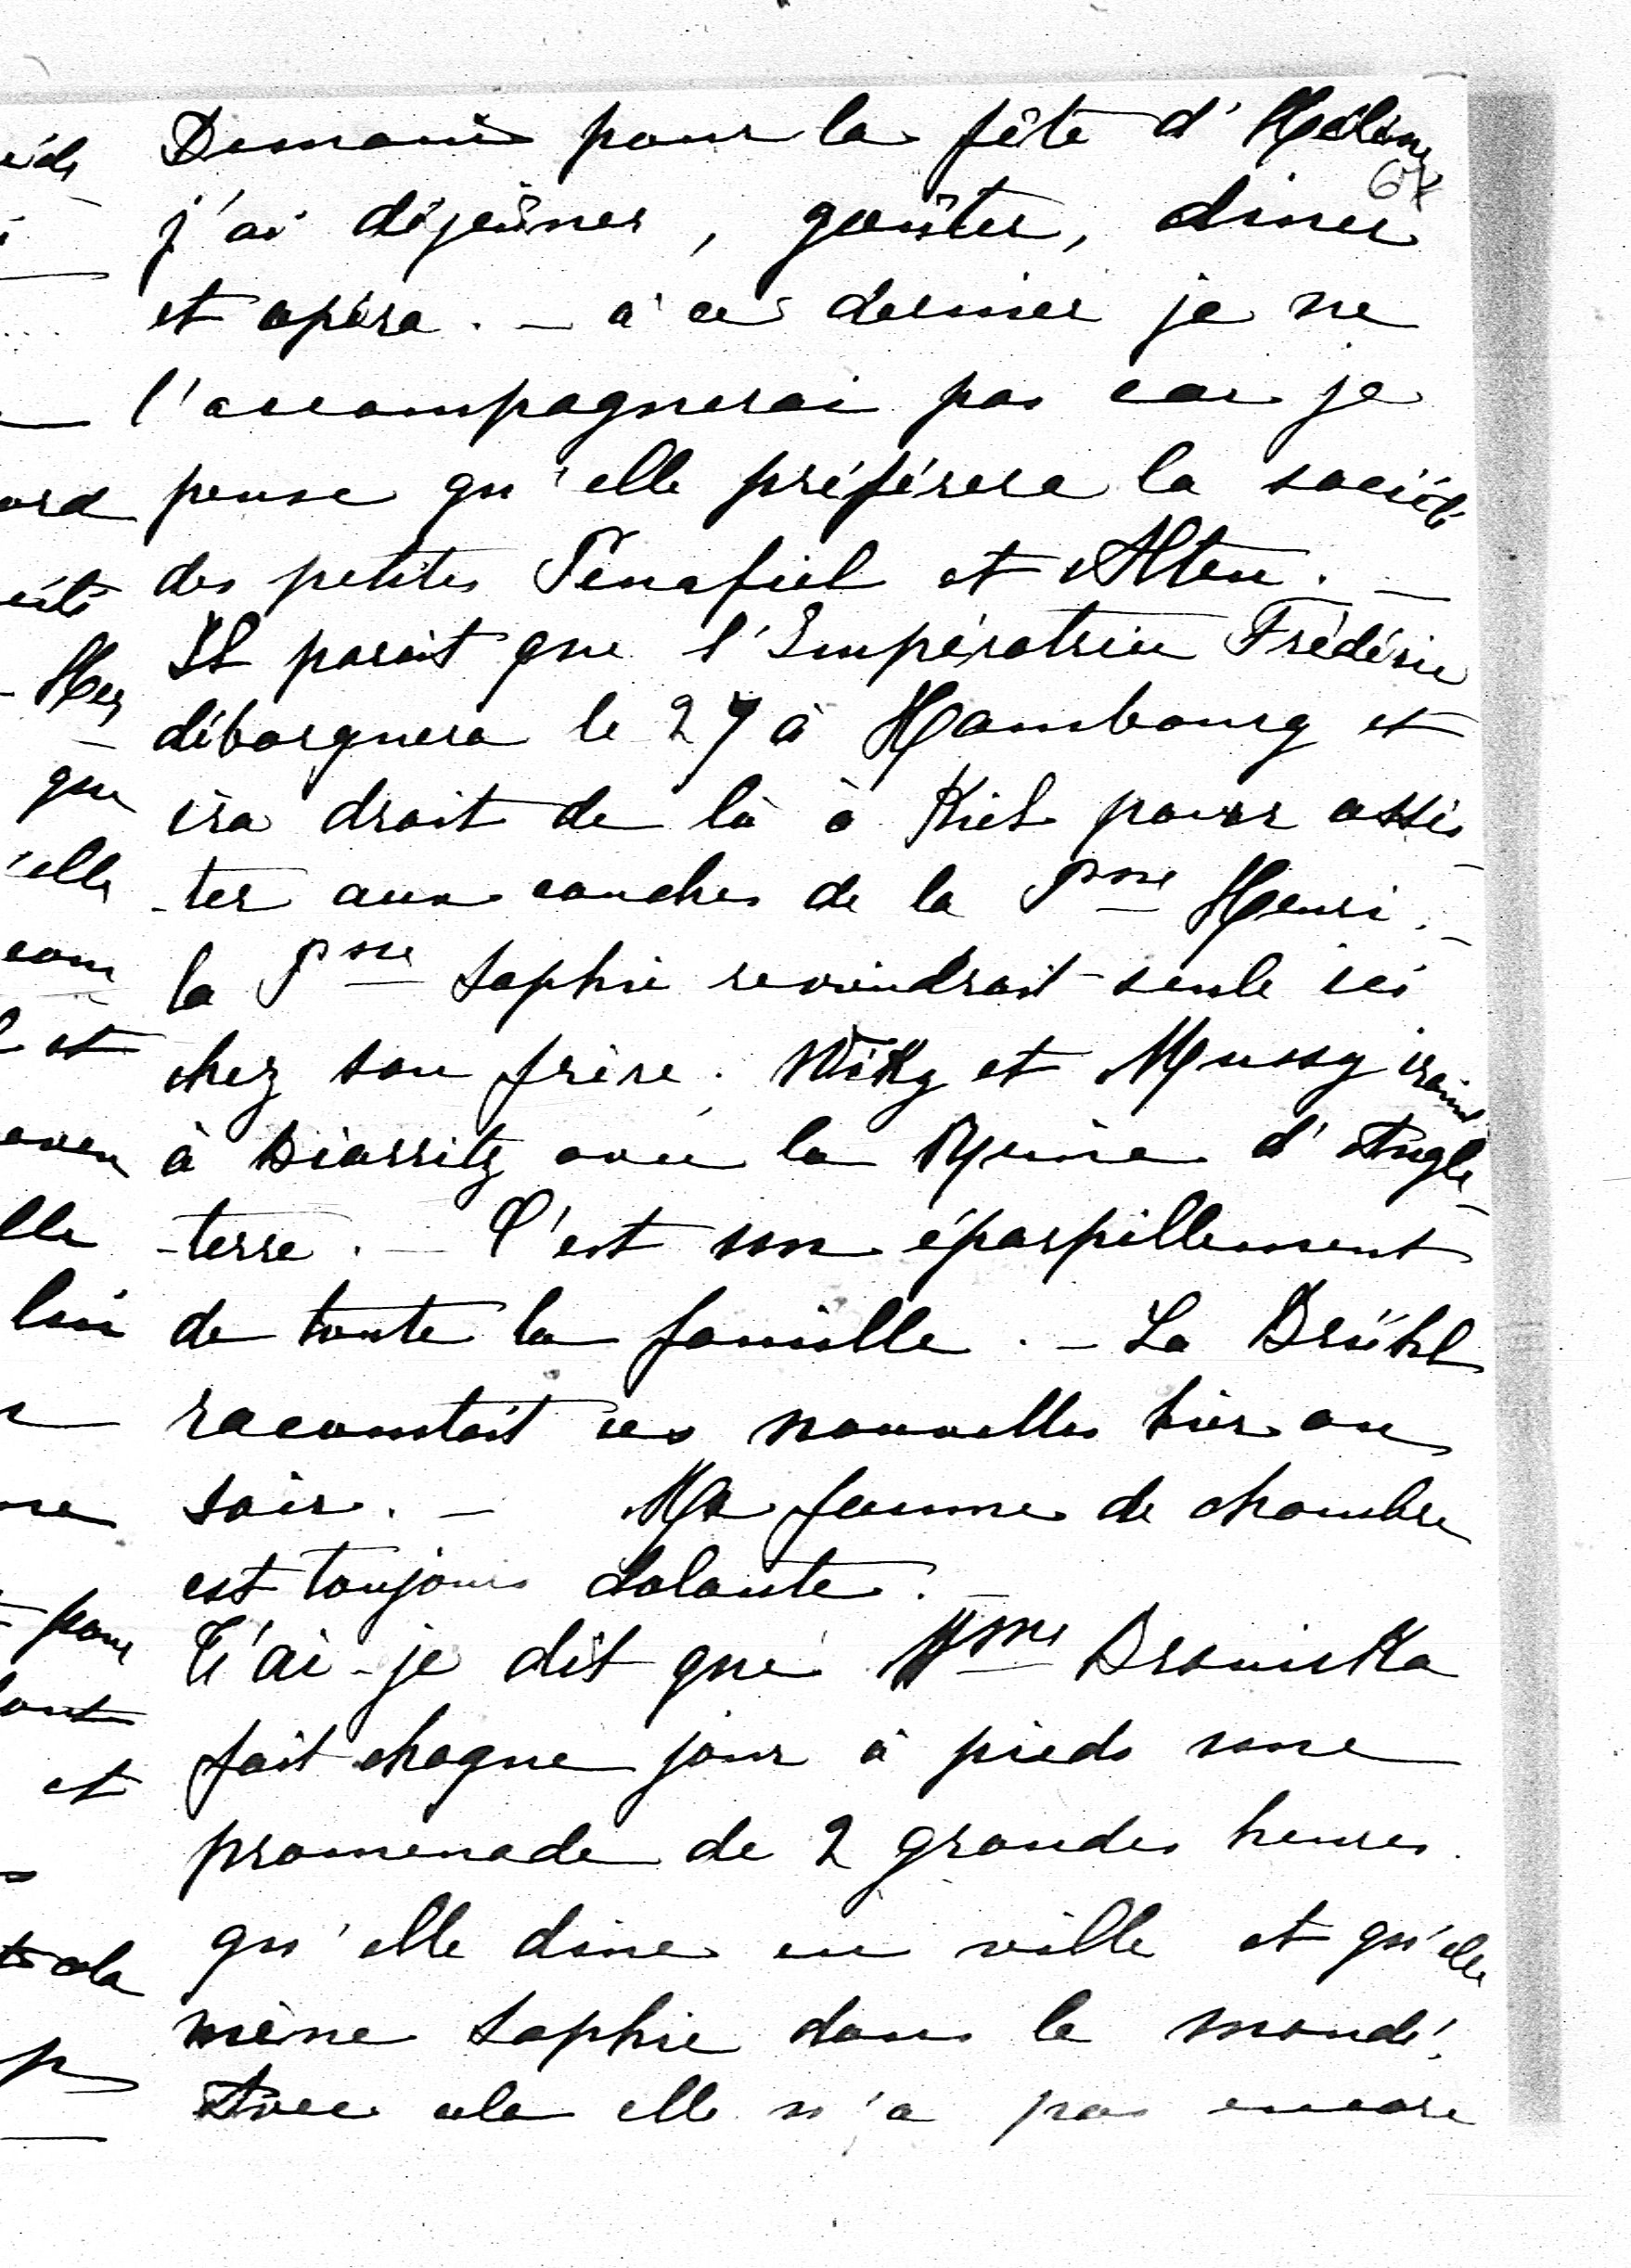 Demain pour la fête d'Hélène
64
j'ai déjeûner, goûter, diner
et opéra. — à ce dernier je ne
l'accompagnerai pas car je
pense qu'elle préférera la société
des petites Penafiel et Alten. —
Il parait que l'Impératrice Frédéric
débarquera le 27 à Hambourg et
ira droit de là à Kiel pour assis
-ter aux couches de la Psse Henri. —
la Psse Sophie reviendrait seule ici
chez son frère. Vicky et Mussy iraient
à Biarritz avec la Reine d'Angle
-terre. — C'est un éparpillement
de toute la famille. — La Brühl
racontait ces nouvelles hier au
soir. — Ma femme de chambre
est toujours dolante. —
T'ai-je dit que Mme Broniska
fait chaque jour à pieds une
promenade de 2 grandes heures
qu'elle dine en ville et qu'elle
mène Sophie dans le monde!
Avec cela elle n'a pas encore